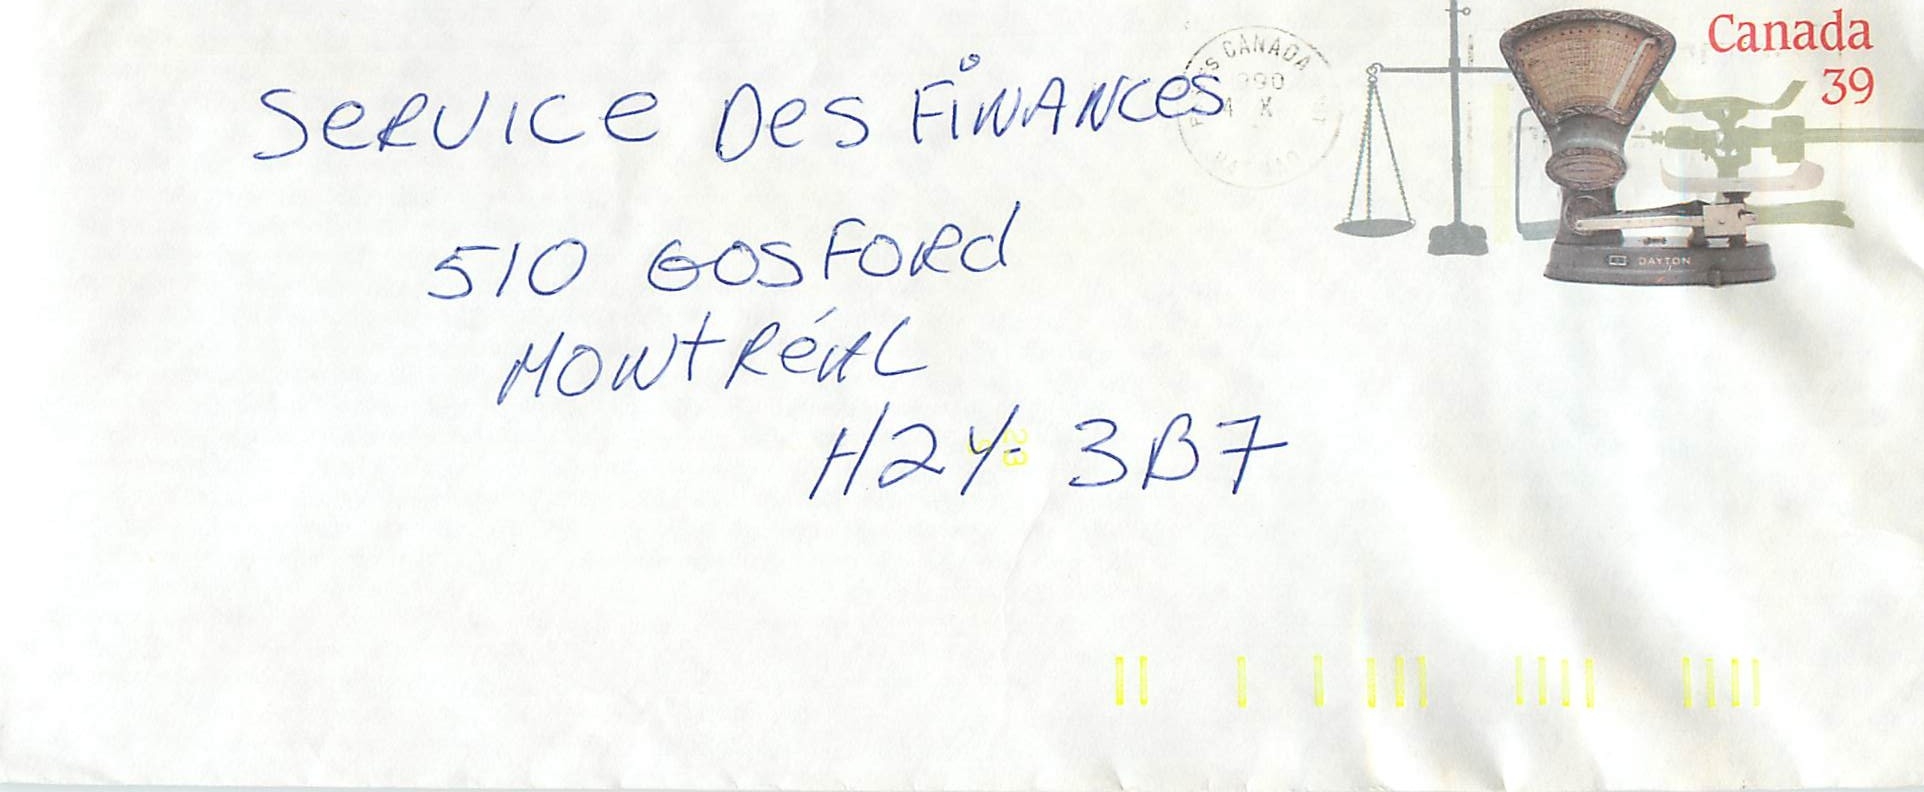 Canada
39
SERVICE DES FINANCES
CANADA
1990
X
510 GOSFORD
MONTRÉAL
DAYTON
H2Y 3B7
23